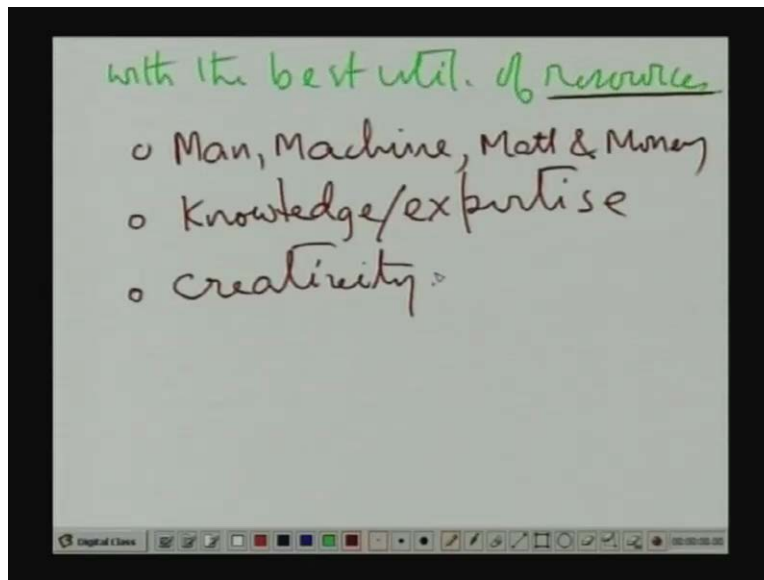 with the best util. of resources
o Man, Machine, Matl & Money
o Knowledge/expertise
o creativity.
Digital Class 00:00:00.00